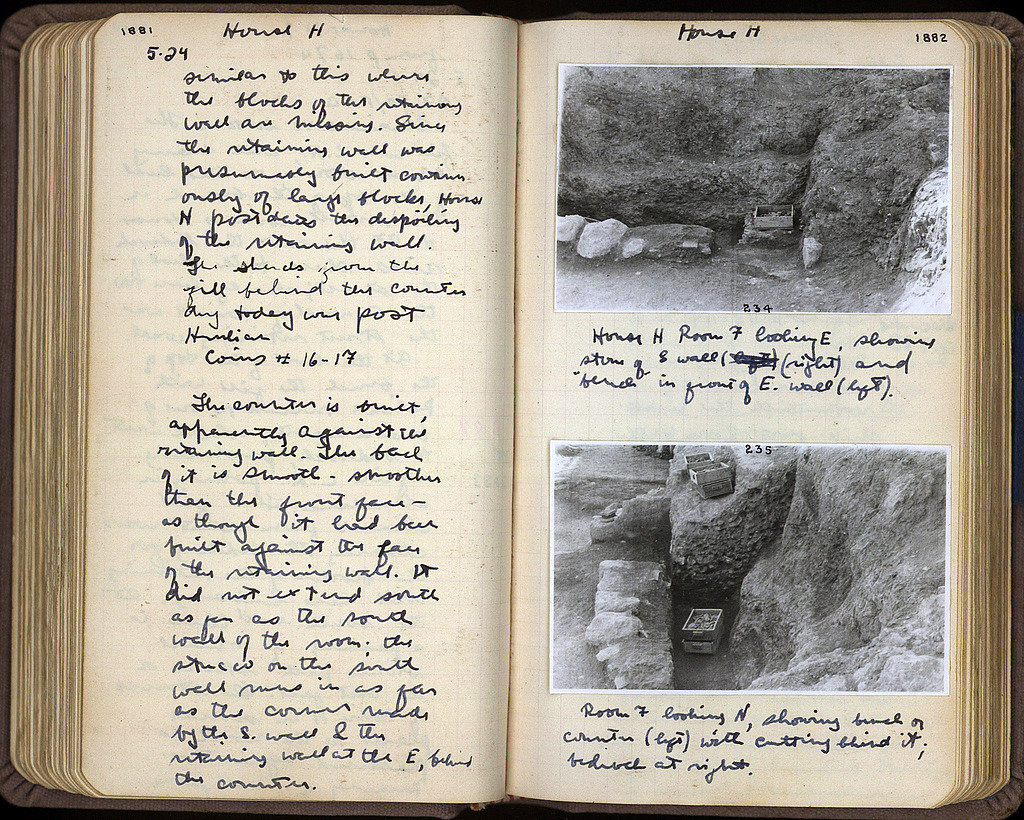 1881
House H
5·24
similar to this where
the blocks of the retaining
wall are missing. Since
the retaining wall was
presumably built contin-
ously of large blocks, House
H postdates the despoiling
of the retaining wall.
The sherds from the
fill behind the counter
dug today were post
Herulian
Coins # 16-17
The counter is built,
apparently against the
retaining wall. The back
of it is smooth - smoother
than the front face -
as though it had been
built against the face
of the retaining wall. It
did not extend south
as far as the south
wall of the room. The
stucco on the south
wall runs in as far
as the corner made
by the S. wall & the
retaining wall at the E, behind
the counter.
House H
1882
234
House H Room 7 looking E, showing
stun of S wall (left) (right) and
"bench" in front of E. wall (left).
235
Room 7 looking N, showing bench or
counter (left) with cutting behind it;
bedrock at right.